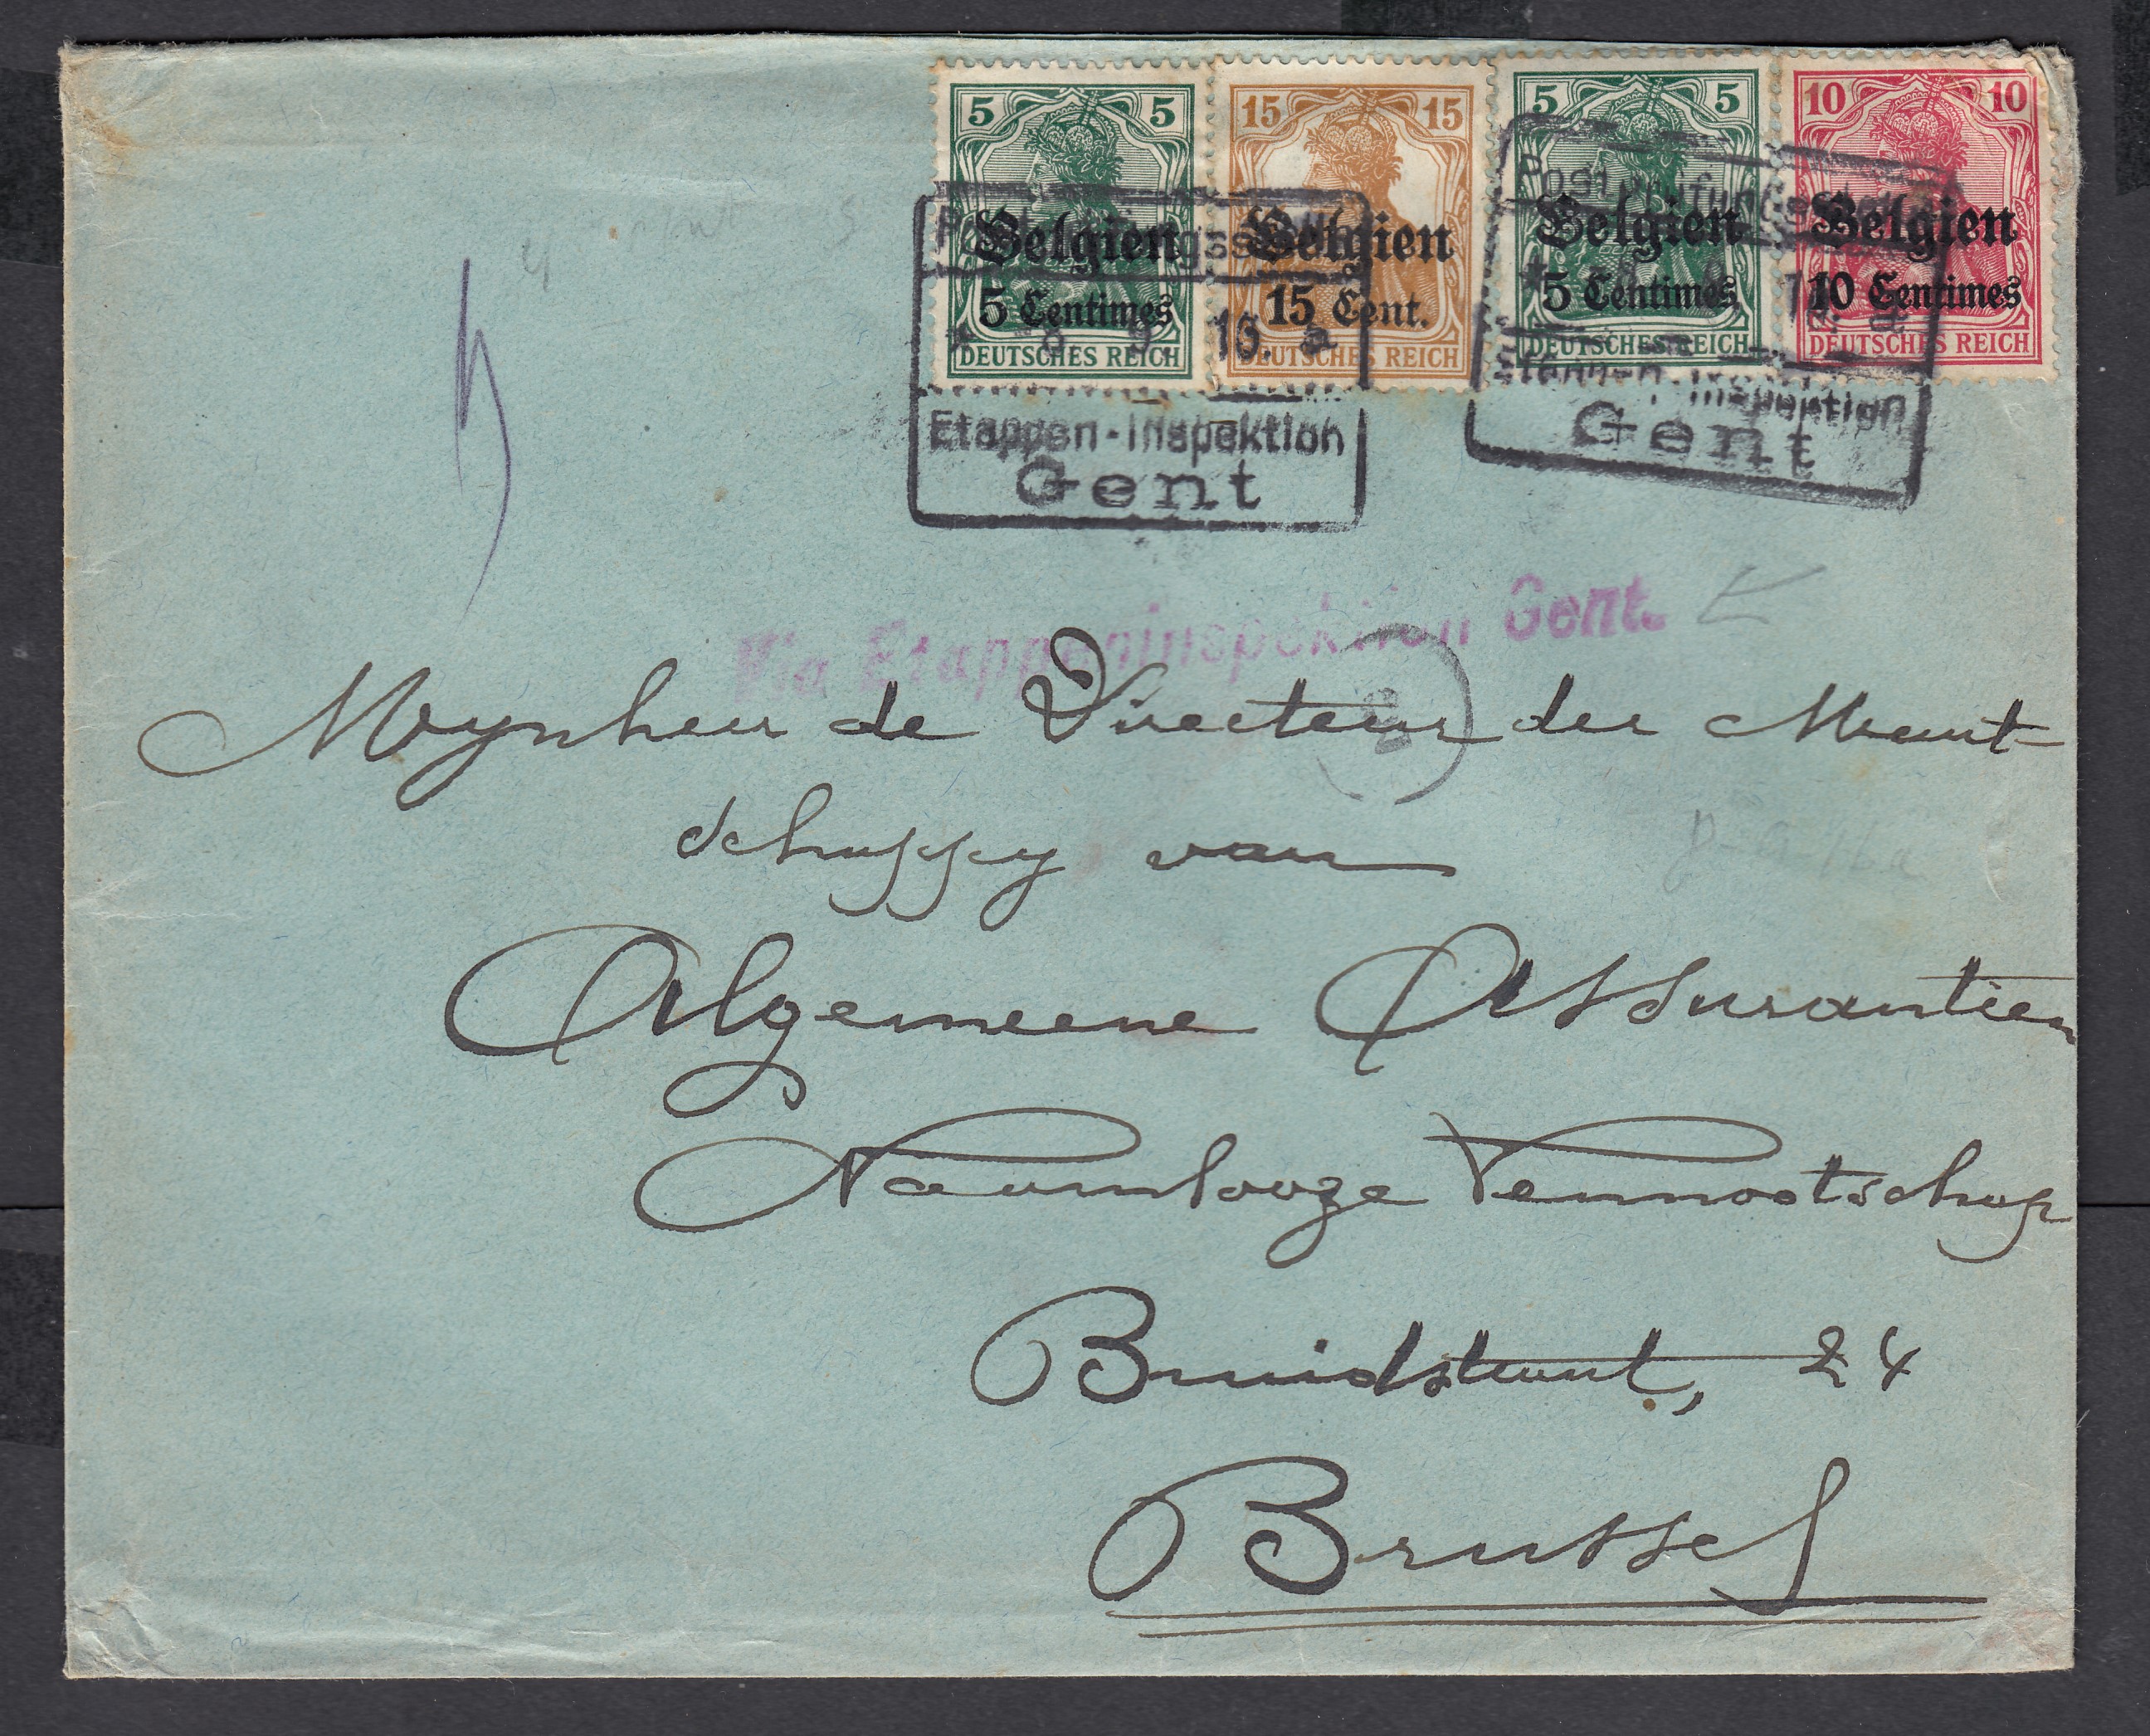 5 5 15 15 5 5 10 10
Belgien Belgien Belgien Belgien
5 Centimes 15 Cent. 5 Centimes 10 Centimes
DEUTSCHES REICH DEUTSCHES REICH DEUTSCHES REICH DEUTSCHES REICH
8. 9. 16. a
Etappen-Inspektion
Gent
Postprüfungsstelle
Etappen-Inspektion
Gent
Via Etappeninspektion Gent.
Mynheer de Directeur der Maat-
schappy van
Algemeene Assurantien
Naamlooze Vennootschap
Bruidstraat, 24
Brussel
8-9-16a